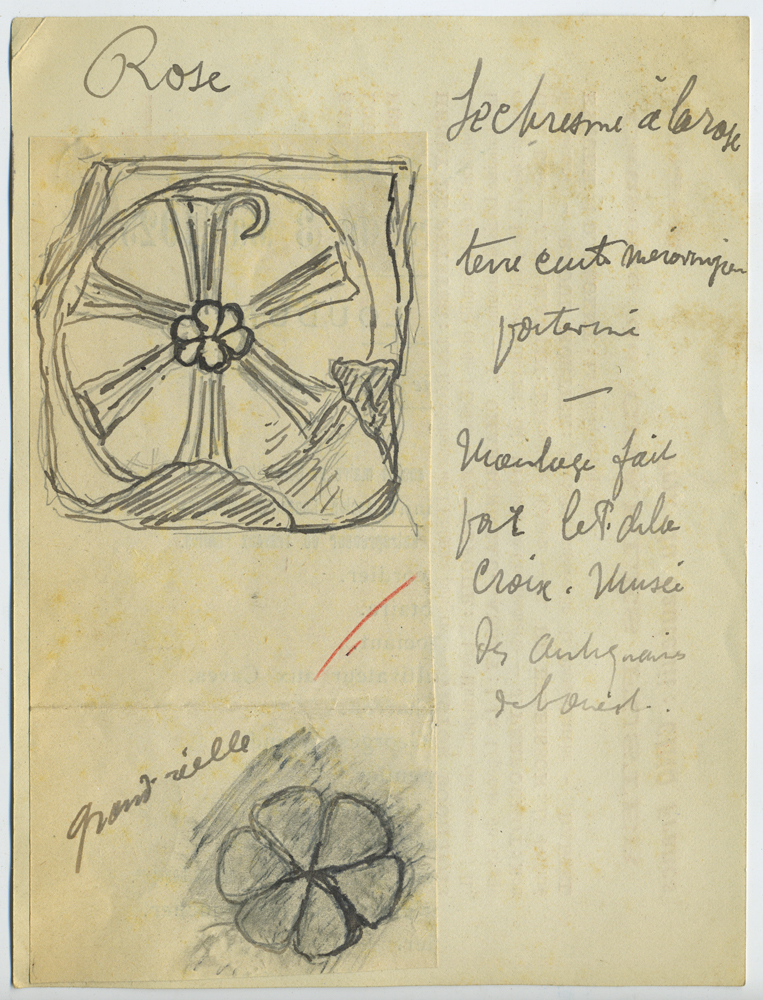 Rose
Le chresme à la rose
terre cuite mérovingien
poitevine
Moulage fait
par le P. de la
Croix. Musée
des Antiquaires
de l'Ouest.
grand. réelle